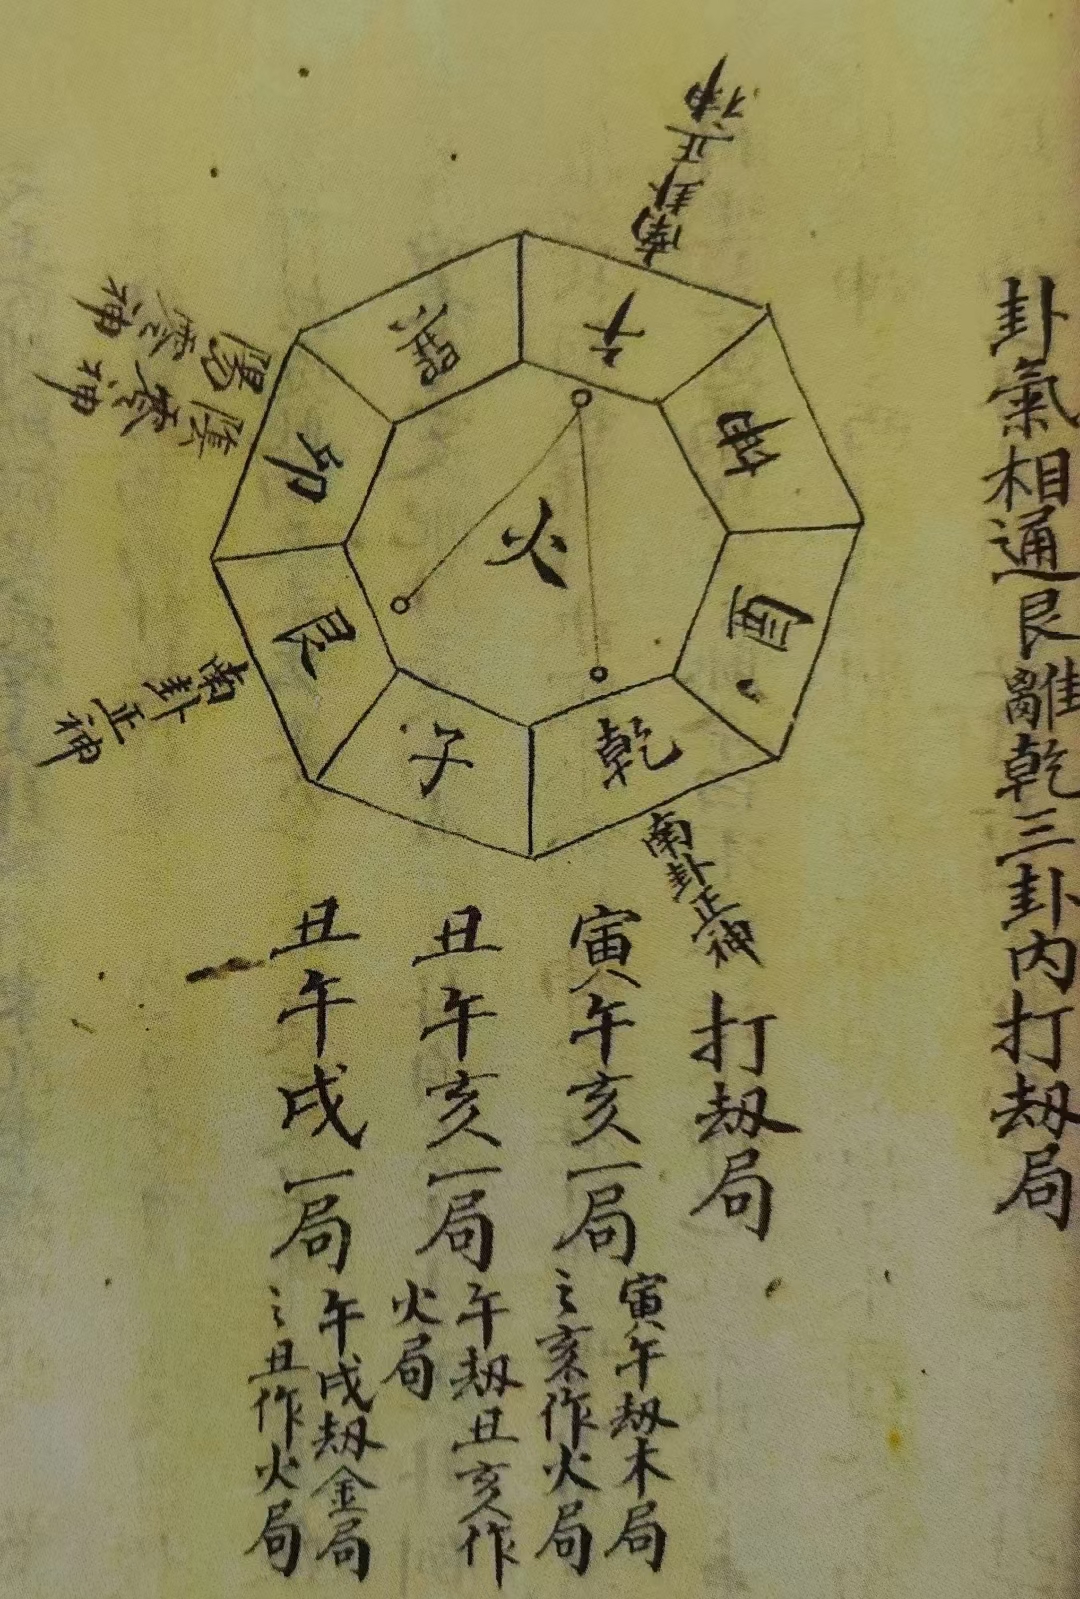 卦氣相通艮離乾三卦內打刼局
南卦正神
午
坤
酉
乾
南卦正神
子
艮
南卦正神
卯
陽零神
陰零神
巽
火
打刼局
寅午亥一局
寅午刼木局
之亥作火局
丑午亥一局
午刼丑亥作
火局
丑午戌一局
午戌刼金局
之丑作火局